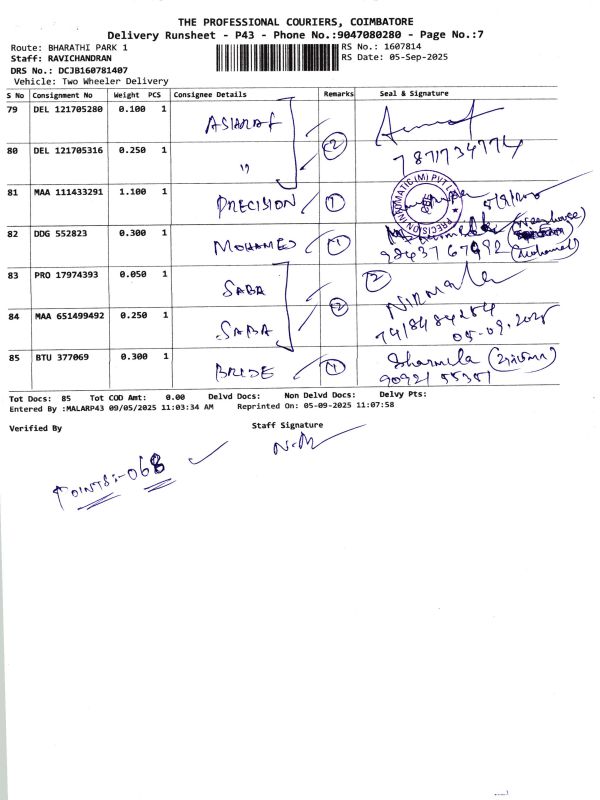 THE PROFESSIONAL COURIERS, COIMBATORE
Delivery Runsheet - P43 - Phone No.:9047080280 - Page No.:7
Route: BHARATHI PARK 1 RS No.: 1607814
Staff: RAVICHANDRAN RS Date: 05-Sep-2025
DRS No.: DCJB160781407
Vehicle: Two Wheeler Delivery
S No Consignment No Weight PCS Consignee Details Remarks Seal & Signature
79 DEL 121705280 0.100 1 ASHRAF
80 DEL 121705316 0.250 1 " 2 7871734774
81 MAA 111433291 1.100 1 PRECISION 1
PRECISION INFOMATIC (M) PVT LTD
82 DDG 552823 0.300 1 MOHAMED 1 9843767992 (Mohamed)
83 PRO 17974393 0.050 1 SABA 2 Nirmala
84 MAA 651499492 0.250 1 SABA 2 7418484284
05.09.2025
85 BTU 377069 0.300 1 BRIDE 1 Sharmila
9092155351
Tot Docs: 85 Tot COD Amt: 0.00 Delvd Docs: Non Delvd Docs: Delvy Pts:
Entered By :MALARP43 09/05/2025 11:03:34 AM Reprinted On: 05-09-2025 11:07:58
Verified By Staff Signature
POINTS:-068